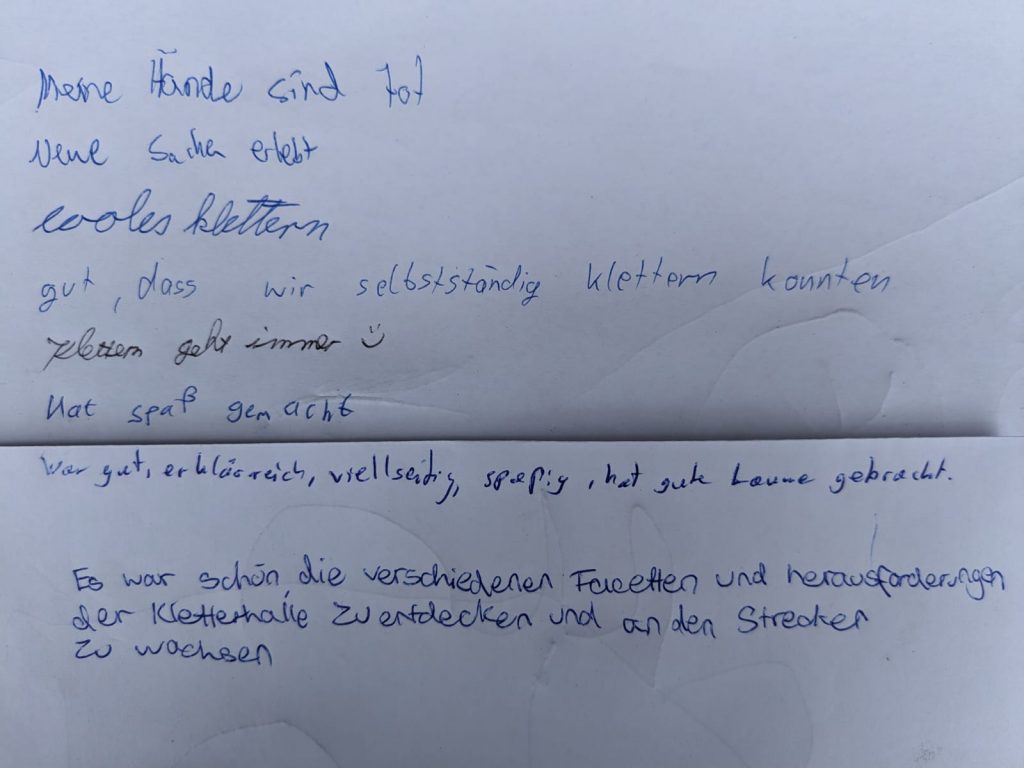 Meine Hände sind tot
Neue Sachen erlebt
cooles klettern
gut, dass wir selbstständig klettern konnten
klettern geht immer :)
Hat spaß gemacht
War gut, erklärreich, viellseitig, spaßig, hat gute Laune gebracht.
Es war schön, die verschiedenen Facetten und herausforderungen
der Kletterhalle zu entdecken und an den Strecken
zu wachsen